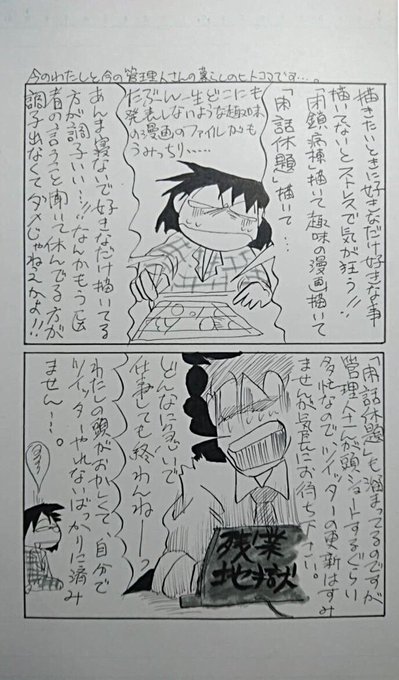 今のわたしと今の管理人さんの暮らしのヒトコマです…。
描きたいときに好きなだけ好きな事
描いてないとストレスで気が狂う!!
「閉鎖病棟」描いて趣味の漫画描いて
「閑話休題」描いて…
たぶん一生どこにも
発表しないような趣味
の漫画のファイルがも
うみっちり……
あんま寝ないで好きなだけ描いてる
方が調子いい…!!なんかもう医
者の言うこと聞いて休んでる方が
調子出なくてダメじゃねえかよ!!
「閑話休題」も溜まってるのですが
管理人さんが頭ショートするぐらい
多忙なのでツイッターの更新はすみ
ませんが気長にお待ち下さい。
残業
地獄
どんなに急いで
仕事しても終わんねーっ
わたしの頭がおかしくて、自分で
ツイッターやれないばっかりに済み
ません…。